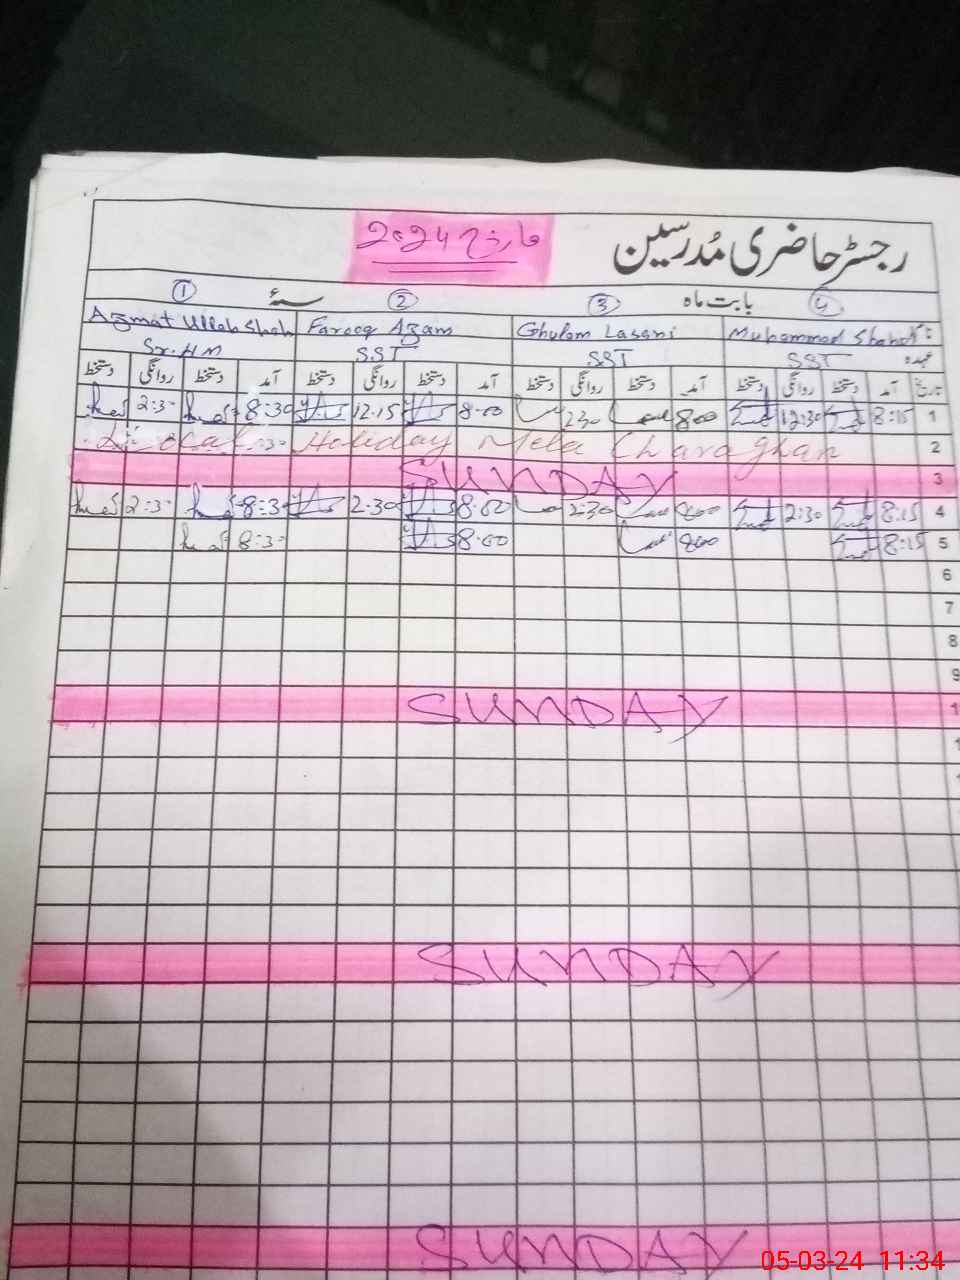 رجسٹر حاضری مُدرسین
مارچ 2024
بابت ماہ سنۂ
① ② ③ ④
Azmat Ullah Shah Farooq Azam Ghulam Lasani Muhammad
عہدہ Sr. HM SST SST SST
تاریخ آمد دستخط روانگی دستخط آمد دستخط روانگی دستخط آمد دستخط روانگی دستخط آمد دستخط روانگی دستخط
1 8:15 12:30 800 230 8.00 12.15 8:30 2:30
2 Local Holiday Mela Charaghan
3 SUNDAY
4 8:15 2:30 800 2:30 8.00 2.30 8:30 2:30
5 8:15 800 8.00 8:30
6
7
8
9
1 SUNDAY
1
1
SUNDAY
SUNDAY
05-03-24 11:34